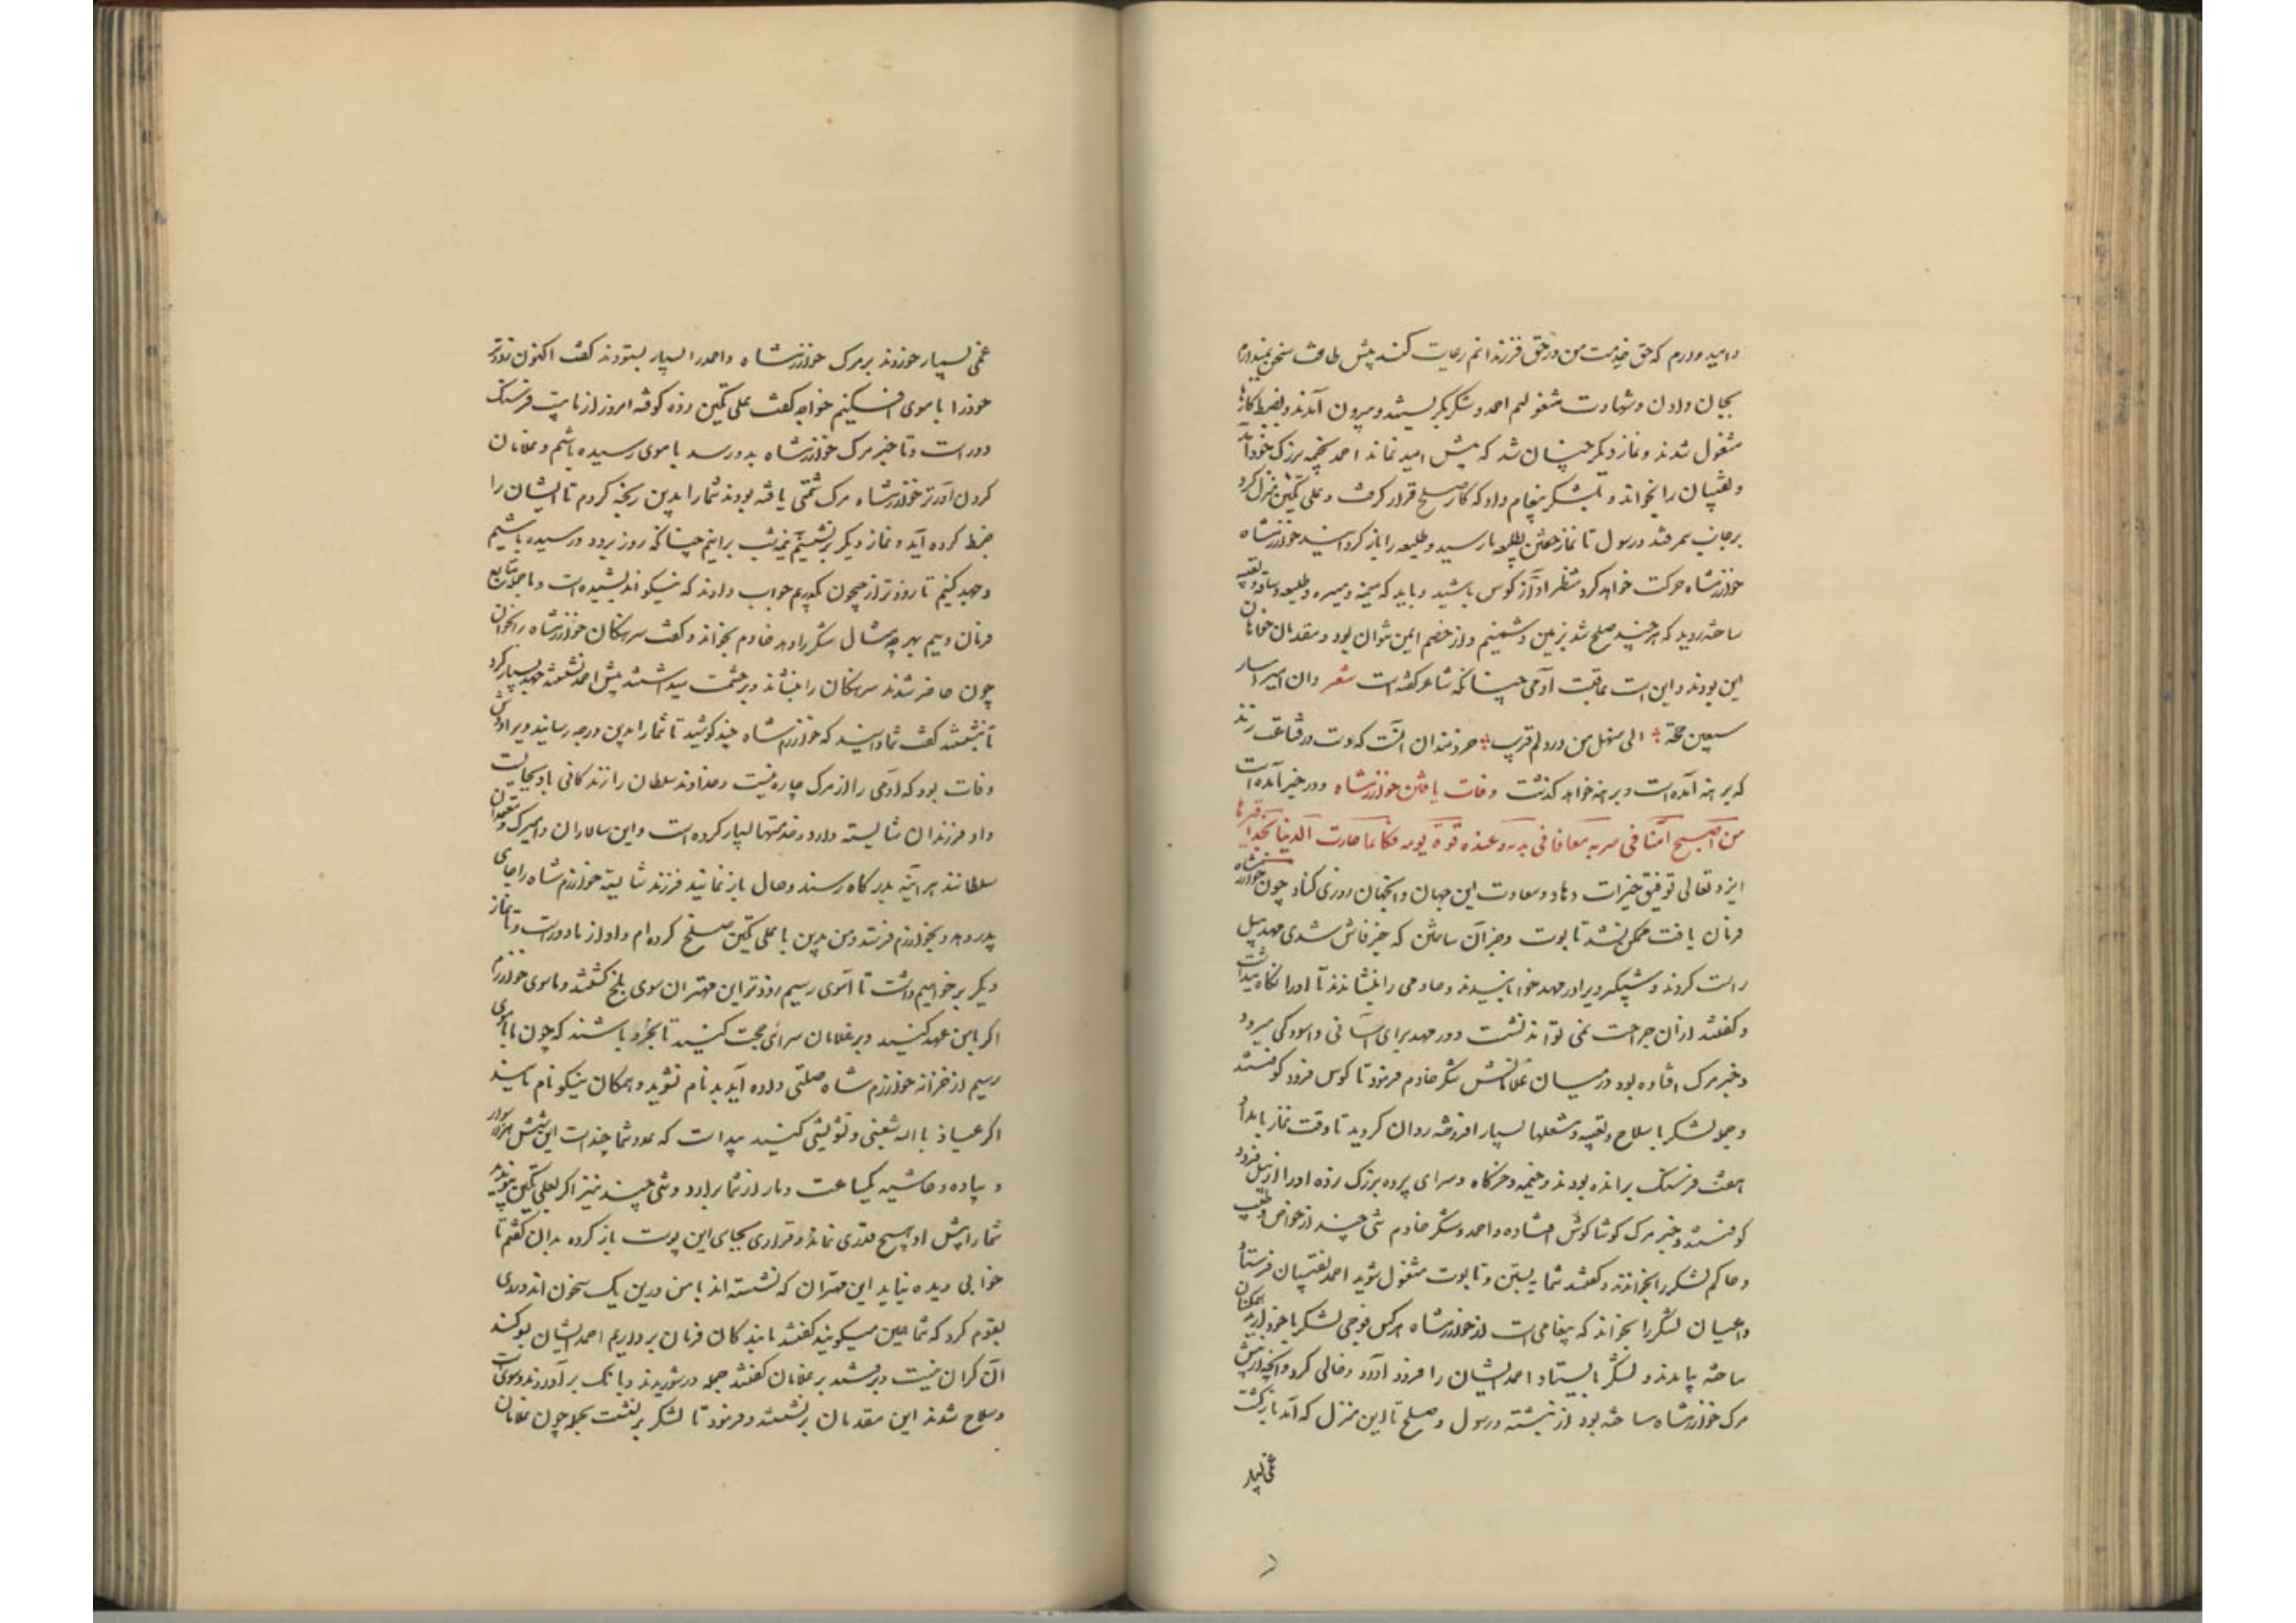 و امید دارم که حق خدمت من در حق فرزندانم رعایت کند پیش طاقت سخن نمیدارم
بجان دادن و شهادت مشغولم احمد و شکر بگریستند و بیرون آمدند و بضبط کارها
مشغول شدند و نماز دیگر چنان شد که بیش امید نماند احمد بخیمه بزرگ خود آمد
و نقیبان را بخواند و بلشکر پیغام داد که کار صلح قرار گرفت و علی تکین منزل کرد
بر جانب سمرقند و رسول تا نماز خفتن بطلیعه ما رسید و طلیعه را باز گردانید خوارزمشاه
خوارزمشاه حرکت خواهد کرد منتظر آواز کوس باشید و باید که میمنه و میسره و طلیعه و ساقه و تعبیه
ساخته روید که هر چند صلح شد بزمین دشمنیم و از خصم ایمن نتوان بود و مقدمان خواهان
این بودند و این است عاقبت آدمی چنانکه شاعر گفته است شعر و ان امیرا سار
سبعین حجة الی منهل من ورد لم قریب خردمندان آنست که دست در قناعت زند
که برهنه آمده است و برهنه خواهد گذشت وفات یافتن خوارزمشاه و در خبر آمده است
من اصبح آمنا فی سربه معافا فی بدنه و عنده قوة یومه فکانما حازت الدنیا بحذافیرها
ایزد تعالی توفیق خیرات دهاد و سعادت این جهان و آنجهان روزی کناد چون خوارزمشاه
فرمان یافت ممکن نشد تابوت و جز آن ساختن که خبر فاش شدی مهد پیل
راست کردند و شبگیر ویرا در مهد خوابانیدند و خادمی را بنشاندند تا او را نگاه میداشت
و گفتند از آن جراحت نمی تواند نشست و در مهد برای آسانی و آسودگی میرود
و خبر مرگ افتاده بود در میان غلامانش شکر خادم فرمود تا کوس فرو کوفتند
و جمله لشکر با سلاح و تعبیه و مشعلها بسیار افروخته روان کردند تا وقت نماز بامداد
هفت فرسنگ برانده بودند و خیمه و خرگاه و سرای پرده بزرگ زده او را از پیل فرود
گرفتند و خبر مرگ گوشاگوش افتاده و احمد و شکر خادم تنی چند از خواص و طبیب
و حاکم لشکر را بخواندند و گفتند شما بشستن و تابوت مشغول شوید احمد نقیبان فرستاد
و اعیان لشکر را بخواند که پیغامی است از خوارزمشاه هر کس فوجی لشکر با خود آرید همگنان
ساخته بیامدند و لشکر بایستاد احمد ایشان را فرود آورد و خالی کرد و آنچه از پیش
مرگ خوارزمشاه ساخته بود از نبشته و رسول و صلح تا این منزل که آمد باز گفت
غمی بسیار
غمی بسیار خوردند بر مرگ خوارزمشاه و احمد را بسیار بستودند گفت اکنون زودتر
خود را بآموی افکنیم خواجه گفت علی تکین زده کوفته امروز از ما بیست فرسنگ
دور است و تا خبر مرگ خوارزمشاه بدو رسد بآموی رسیده باشیم و غلامان
گردن آورتر خوارزمشاه مرگ شمتی یافته بودند شما را بدین رنجه کردم تا ایشان را
ضبط کرده آید و نماز دیگر برنشینیم نیمشب برانیم چنانکه روز بود و رسیده باشیم
و جهد کنیم تا زودتر از جیحون بگذریم جواب دادند که نیکو اندیشیده است و ما جمله متابع
فرمان وییم بهر چه مثال شکر را دهد خادم بخواند و گفت سرهنگان خوارزمشاه را بخوان
چون حاضر شدند سرهنگان را بنشاند و بر حشمت میداشتند پیش احمد نشستند جهد بسیار کرد
تا بنشستند گفت شما دانید که خوارزمشاه چند کوشید تا شما را بدین درجه رسانید ویرا دوش
وفات بود که آدمی را از مرگ چاره نیست و خداوند سلطان را زندگانی باد بجایست
و او فرزندان شایسته دارد و خدمتها بسیار کرده است و این سالاران و امیرک و معتمدان
سلطانند هر آینه بدرگاه رسند و حال باز نمایند فرزند شایسته خوارزم شاه را جای
پدر دهد و بخوارزم فرستد و من بدین با علی تکین صلح کرده ام و او از ما دور است و تا نماز
دیگر بر خواهیم داشت تا آموی رسیم زودتر این مهتران سوی بلخ کشند و ما سوی خوارزم
اگر با من عهد کنید و بر غلامان سرای حجت کنید تا بخرد باشند که چون بآموی
رسیم از خزانه خوارزم شاه صلتی داده آید بدنام نشوید و همگان نیکو نام باشید
اگر عیاذ بالله شغبی و تشویشی کنید پیدا است که عدد شما چند است این شش هزار سوار
و پیاده و حاشیه یکساعت دمار از شما برآرد و تنی چند نیز اگر بعلی تکین پیوندید
شما را پیش او هیچ قدری نماند و قراری بجای این پوست باز کرده بدان گفتم تا
خوابی دیده نیاید این مهتران که نشسته اند با من درین یک سخون اند و روی
بقوم کرد که شما همین میگویید گفتند ما بندگان فرمان برداریم احمد ایشان بسوگند
آن گران نیست و برفتند بر غلامان گفتند جمله در شوریدند و بانگ برآوردند و سوی اسب
و سلاح شدند این مقدمان برنشستند و فرمود تا لشکر برنشست بجمله چون غلامان